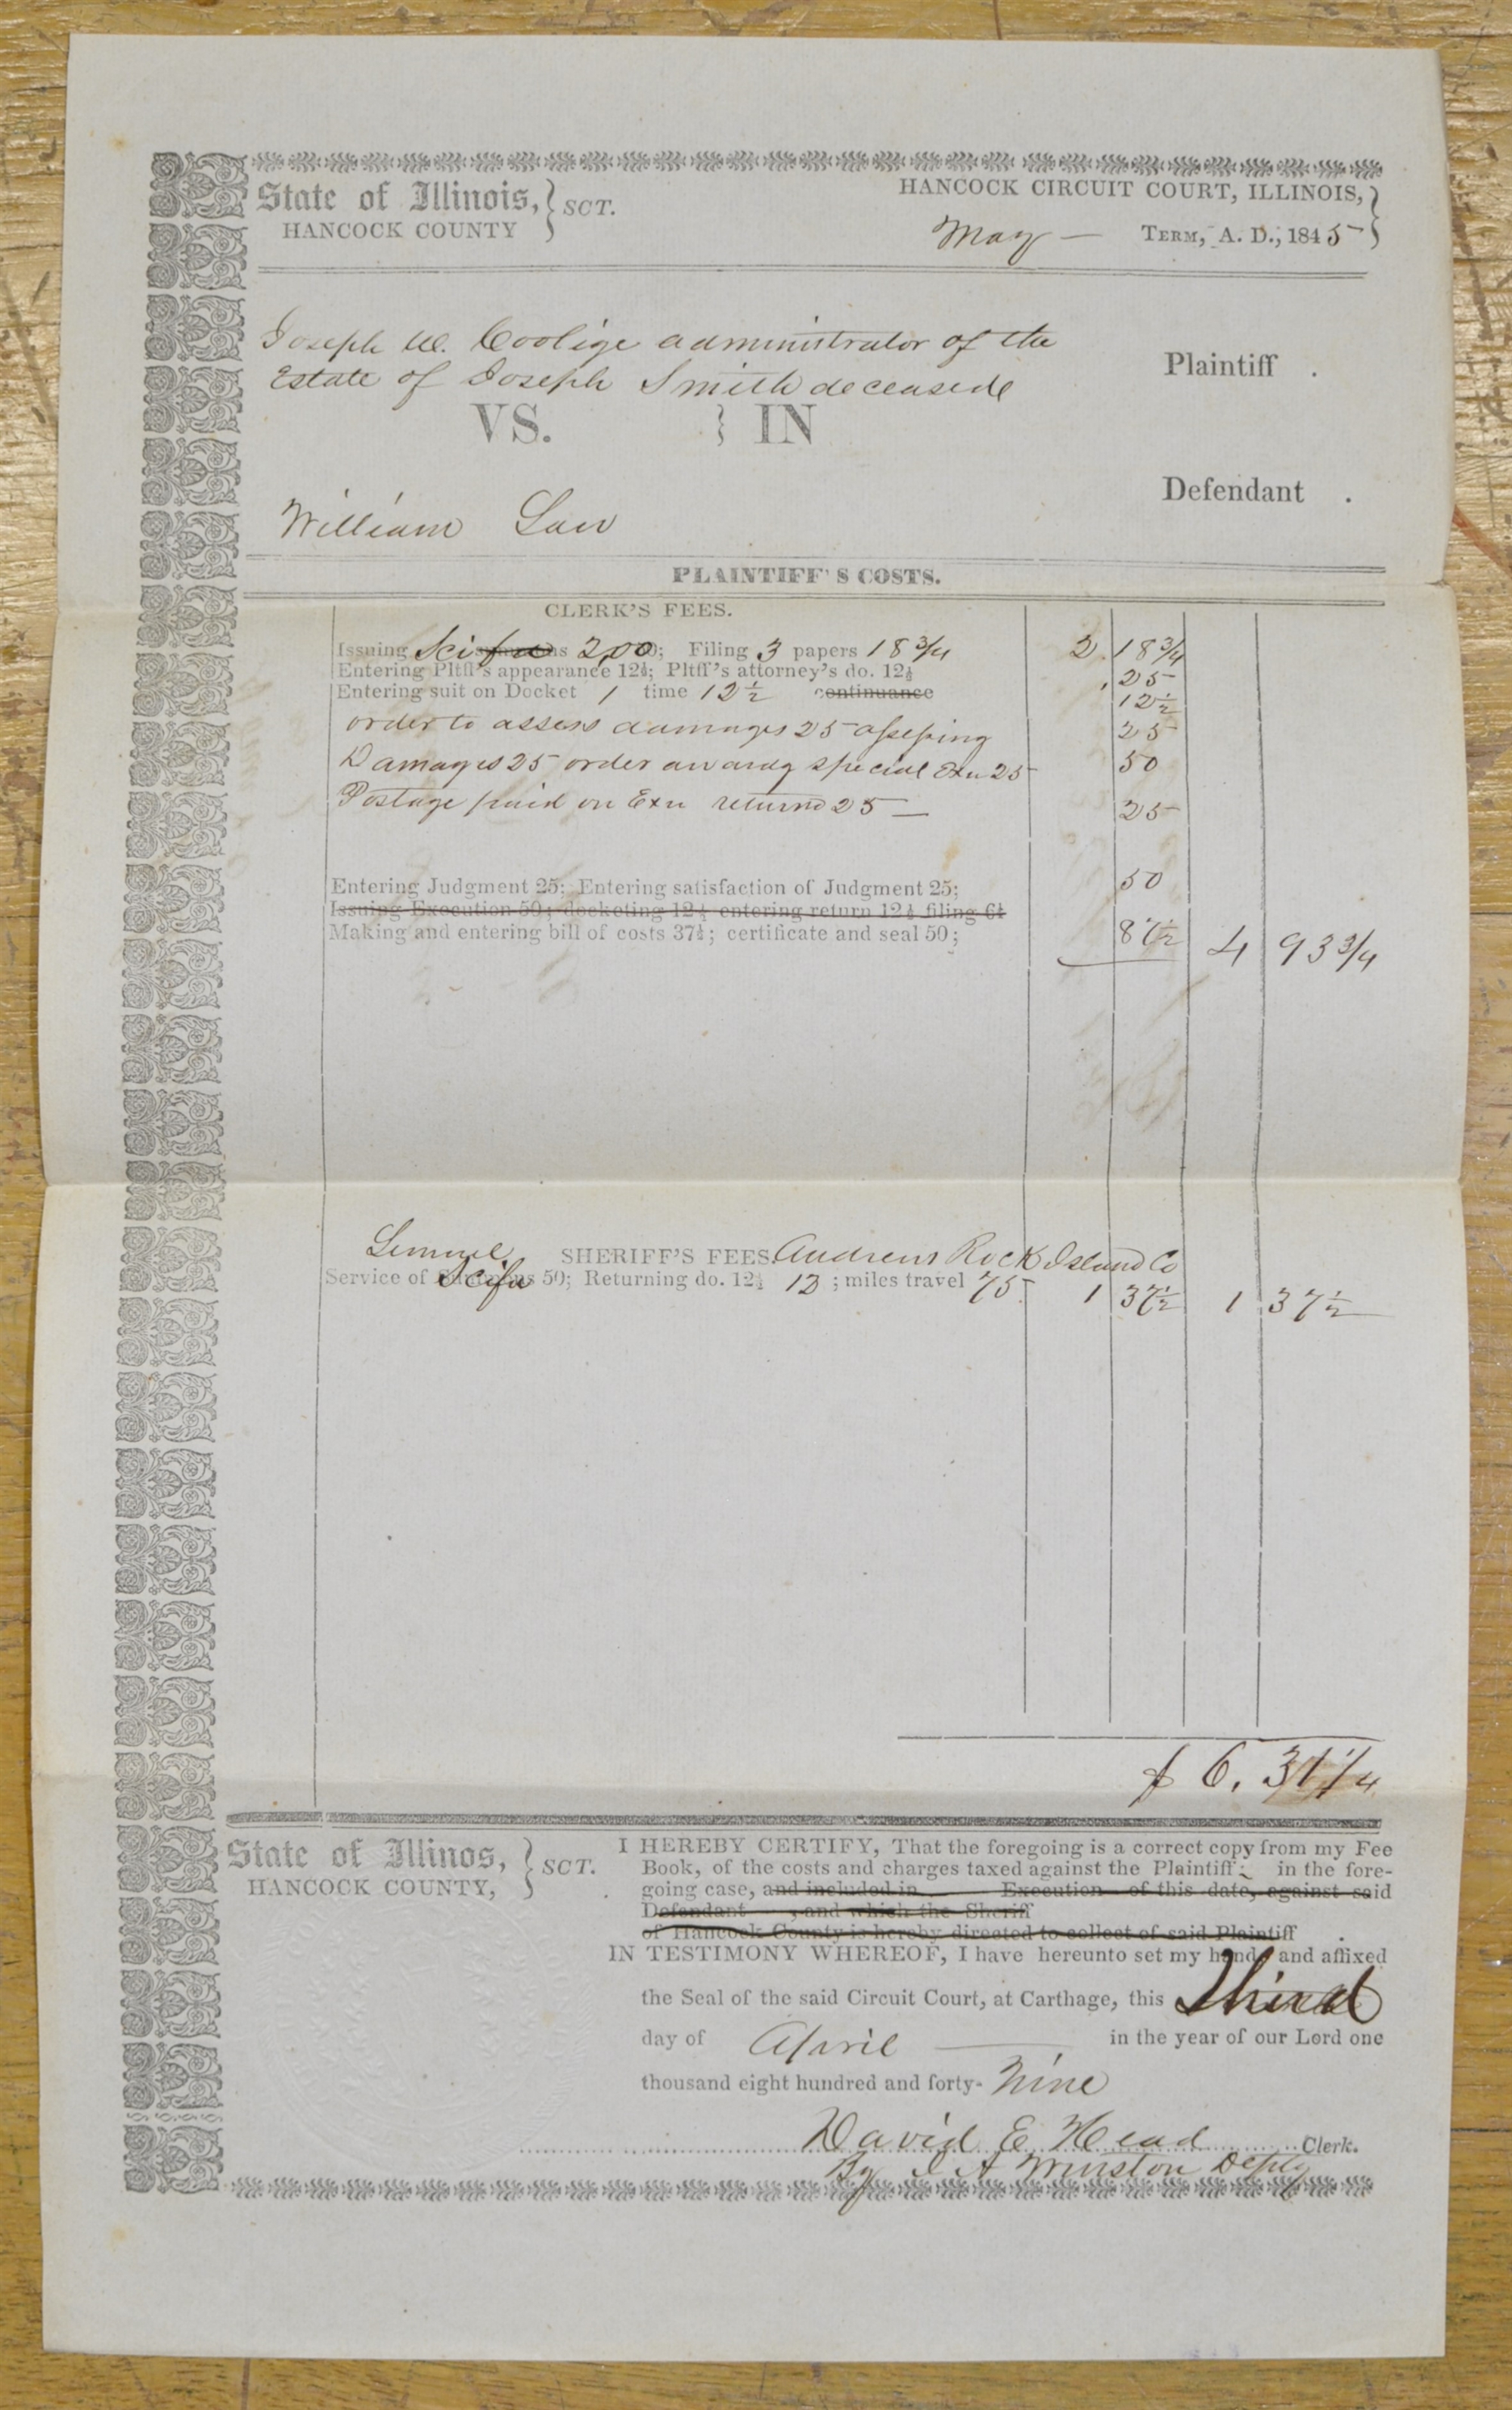 State of Illinois, } SCT.
HANCOCK COUNTY
HANCOCK CIRCUIT COURT, ILLINOIS, }
May — TERM, A. D., 1845
Joseph W. Coolige administrator of the
Estate of Joseph Smith deceased
Plaintiff .
VS. } IN
Defendant .
William Law
PLAINTIFF'S COSTS.
CLERK'S FEES.
Issuing Scifa 2,00; Filing 3 papers 18 3/4 2 18 3/4
Entering Pltff's appearance 12½; Pltff's attorney's do. 12½ 25
Entering suit on Docket 1 time 12 ½ continuance 12 ½
order to assess damages 25 assessing 25
Damages 25 order awardg special Exn 25 50
Postage paid on Exn returnd 25 — 25
Entering Judgment 25; Entering satisfaction of Judgment 25; 50
Issuing Execution 50; docketing 12½ entering return 12½ filing 6¼
Making and entering bill of costs 37½; certificate and seal 50; 87½ 4 93 3/4
Lemuel SHERIFF'S FEES. Andrews Rock Island Co
Service of Scifa 50; Returning do. 12½ 12; miles travel 75 1 37½ 1 37½
$ 6. 31 1/4
State of Illinos, } SCT.
HANCOCK COUNTY,
I HEREBY CERTIFY, That the foregoing is a correct copy from my Fee
Book, of the costs and charges taxed against the Plaintiff; in the fore-
going case, and included in Execution of this date, against said
Defendant , and which the Sheriff
of Hancock County is hereby directed to collect of said Plaintiff .
IN TESTIMONY WHEREOF, I have hereunto set my hand, and affixed
the Seal of the said Circuit Court, at Carthage, this third
day of April — in the year of our Lord one
thousand eight hundred and forty- Nine
David E Head Clerk.
By I A Winston Depty